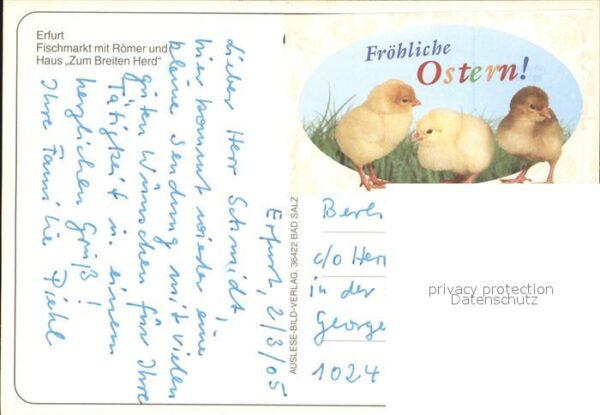 Erfurt
Fischmarkt mit Römer und
Haus „Zum Breiten Herd"
Fröhliche
Ostern!
Erfurt, 2/3/05
Lieber Herr Schmidt,
hier kommt wieder eine
kleine Sendung mit vielen
guten Wünschen für Ihre
Tätigkeit u. einem
herzlichen Gruß!
Ihre Familie Diehl
AUSLESE-BILD-VERLAG, 36422 BAD SALZ
Berl
c/o Herr
in der
George
1024
privacy protection
Datenschutz